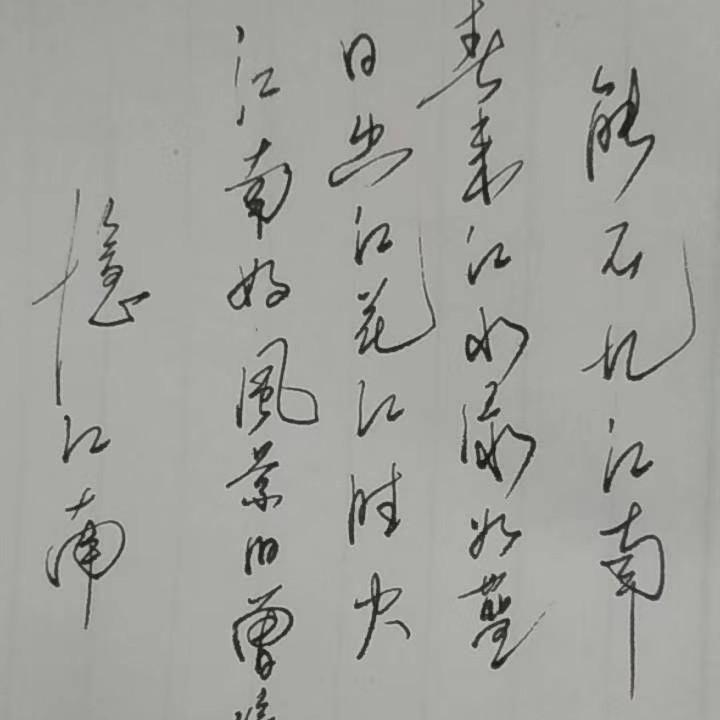 憶江南
江南好風景旧曾
日出江花红胜火
春来江水绿如蓝
能不忆江南